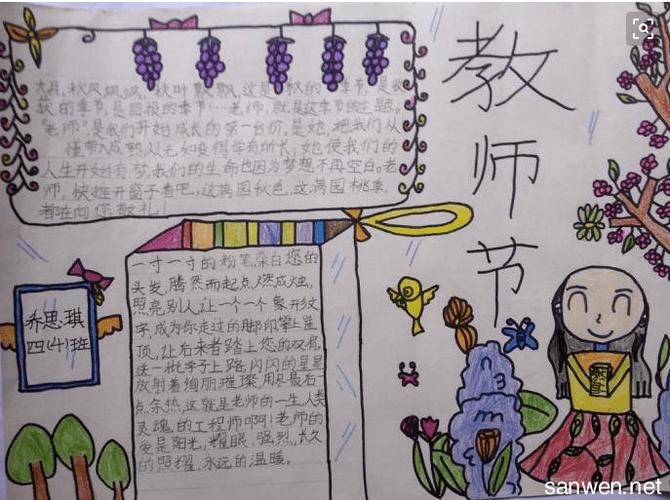 教师节
九月,秋风飒飒,秋叶飘飘,这是秋的季节,是收
获的季节,是回报的季节……老师,就是这季节的主题。
"老师"是我们开始成长的第一台阶,是她,把我们从
懂带入成熟从无知变得学有所长,她使我们的
人生开始有梦,我们的生命也因为梦想不再空白。老
师,快推开窗子看吧,这满园秋色,这满园桃李,
都在向您敬礼!
一寸一寸的粉笔,染白您的
头发,腾然而起点燃成烛,
照亮别人,让一个一个象形文
字,成为你走过的脚印攀上崖
顶,让后来者踏上您的双肩,
送一批学子上路,闪闪的星星
放射着绚丽璀璨,用尽最后一
点余热,这就是老师的一生人类
灵魂的工程师啊!老师的
爱是阳光,耀眼、强烈,长久
的照耀,永远的温暖。
乔思琪
四(4)班
sanwen.net